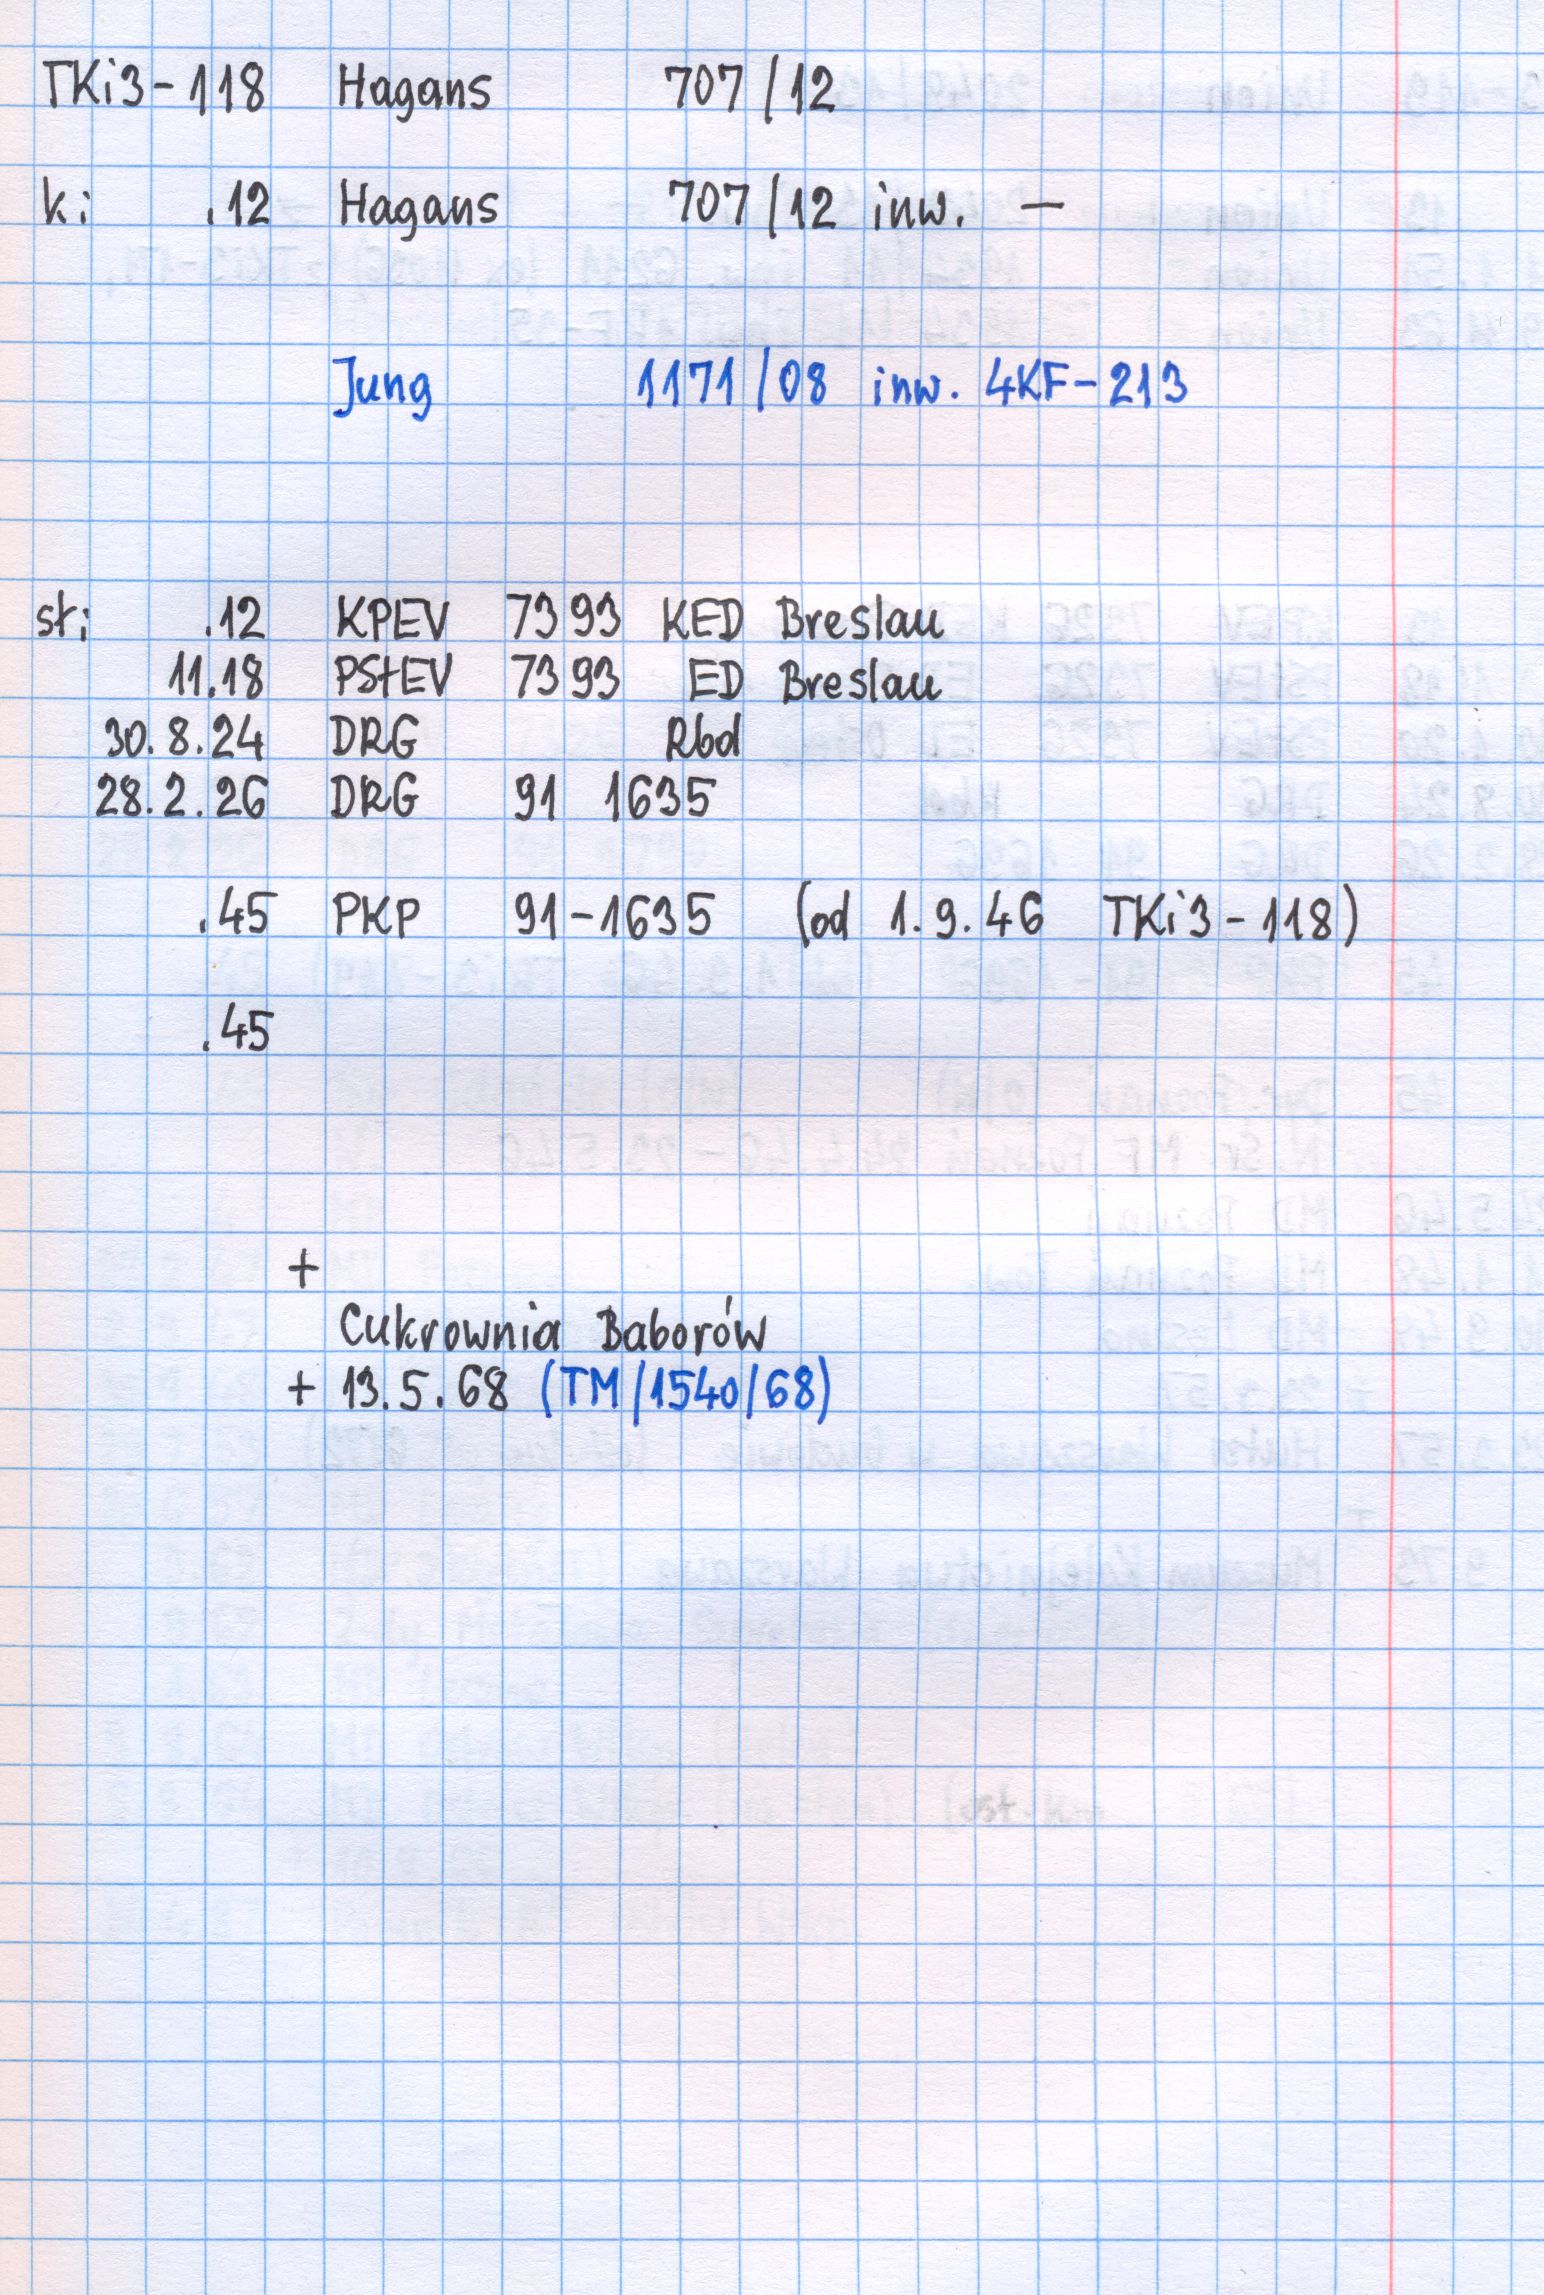 TKi3-118 Hagans 707/12
k: .12 Hagans 707/12 inw. —
Jung 1171/08 inw. 4KF-213
st: .12 KPEV 7393 KED Breslau
11.18 PStEV 7393 ED Breslau
30.8.24 DRG Rbd
28.2.26 DRG 91 1635
.45 PKP 91-1635 (od 1.9.46 TKi3-118)
.45
+
Cukrownia Baborów
+ 13.5.68 (TM/1540/68)